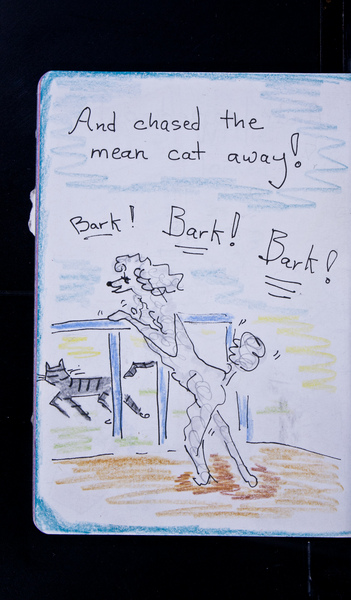 And chased the
mean cat away!
Bark! Bark! Bark!